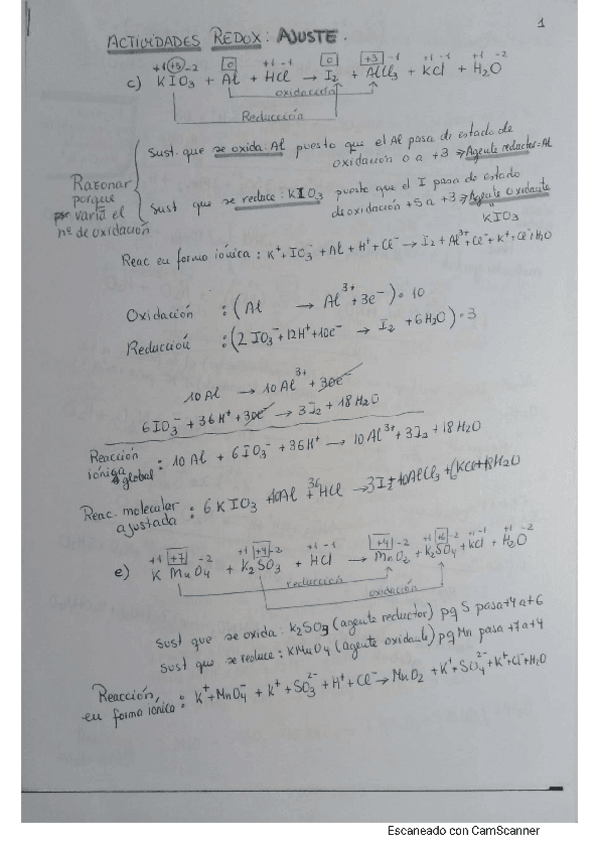 1
ACTIVIDADES REDOX: AJUSTE.
+1 +5 -2 0 +1 -1 0 +3 -1 +1 -1 +1 -2
c) KIO3 + Al + HCl → I2 + AlCl3 + KCl + H2O
oxidación
Reducción
Razonar porque por varía el nº de oxidación
Sust. que se oxida: Al puesto que el Al pasa de estado de
oxidación 0 a +3 ⇒ Agente reductor = Al
Sust que se reduce: KIO3 puesto que el I pasa de estado
de oxidación +5 a +3 ⇒ Agente oxidante
KIO3
Reac en forma iónica: K+ + IO3- + Al + H+ + Cl- → I2 + Al3+ + Cl- + K+ + Cl- + H2O
Oxidación : (Al → Al3+ + 3e-) · 10
Reducción : (2IO3- + 12H+ + 10e- → I2 + 6H2O) · 3
10Al → 10Al3+ + 30e-
6IO3- + 36H+ + 30e- → 3I2 + 18H2O
Reacción ióniga global : 10Al + 6IO3- + 36H+ → 10Al3+ + 3I2 + 18H2O
Reac. molecular ajustada : 6KIO3 + 10Al + 36HCl → 3I2 + 10AlCl3 + 6KCl + 18H2O
+1 +7 -2 +1 +4 -2 +1 -1 +4 -2 +1 +6 -2 +1 -1 +1 -2
e) KMnO4 + K2SO3 + HCl → MnO2 + K2SO4 + KCl + H2O
reducción
oxidación
Sust que se oxida: K2SO3 (agente reductor) pq S pasa +4 a +6
Sust que se reduce: KMnO4 (agente oxidante) pq Mn pasa +7 a +4
Reacción, en forma iónica: K+ + MnO4- + K+ + SO3 2- + H+ + Cl- → MnO2 + K+ + SO4 2- + K+ + Cl- + H2O
Escaneado con CamScanner